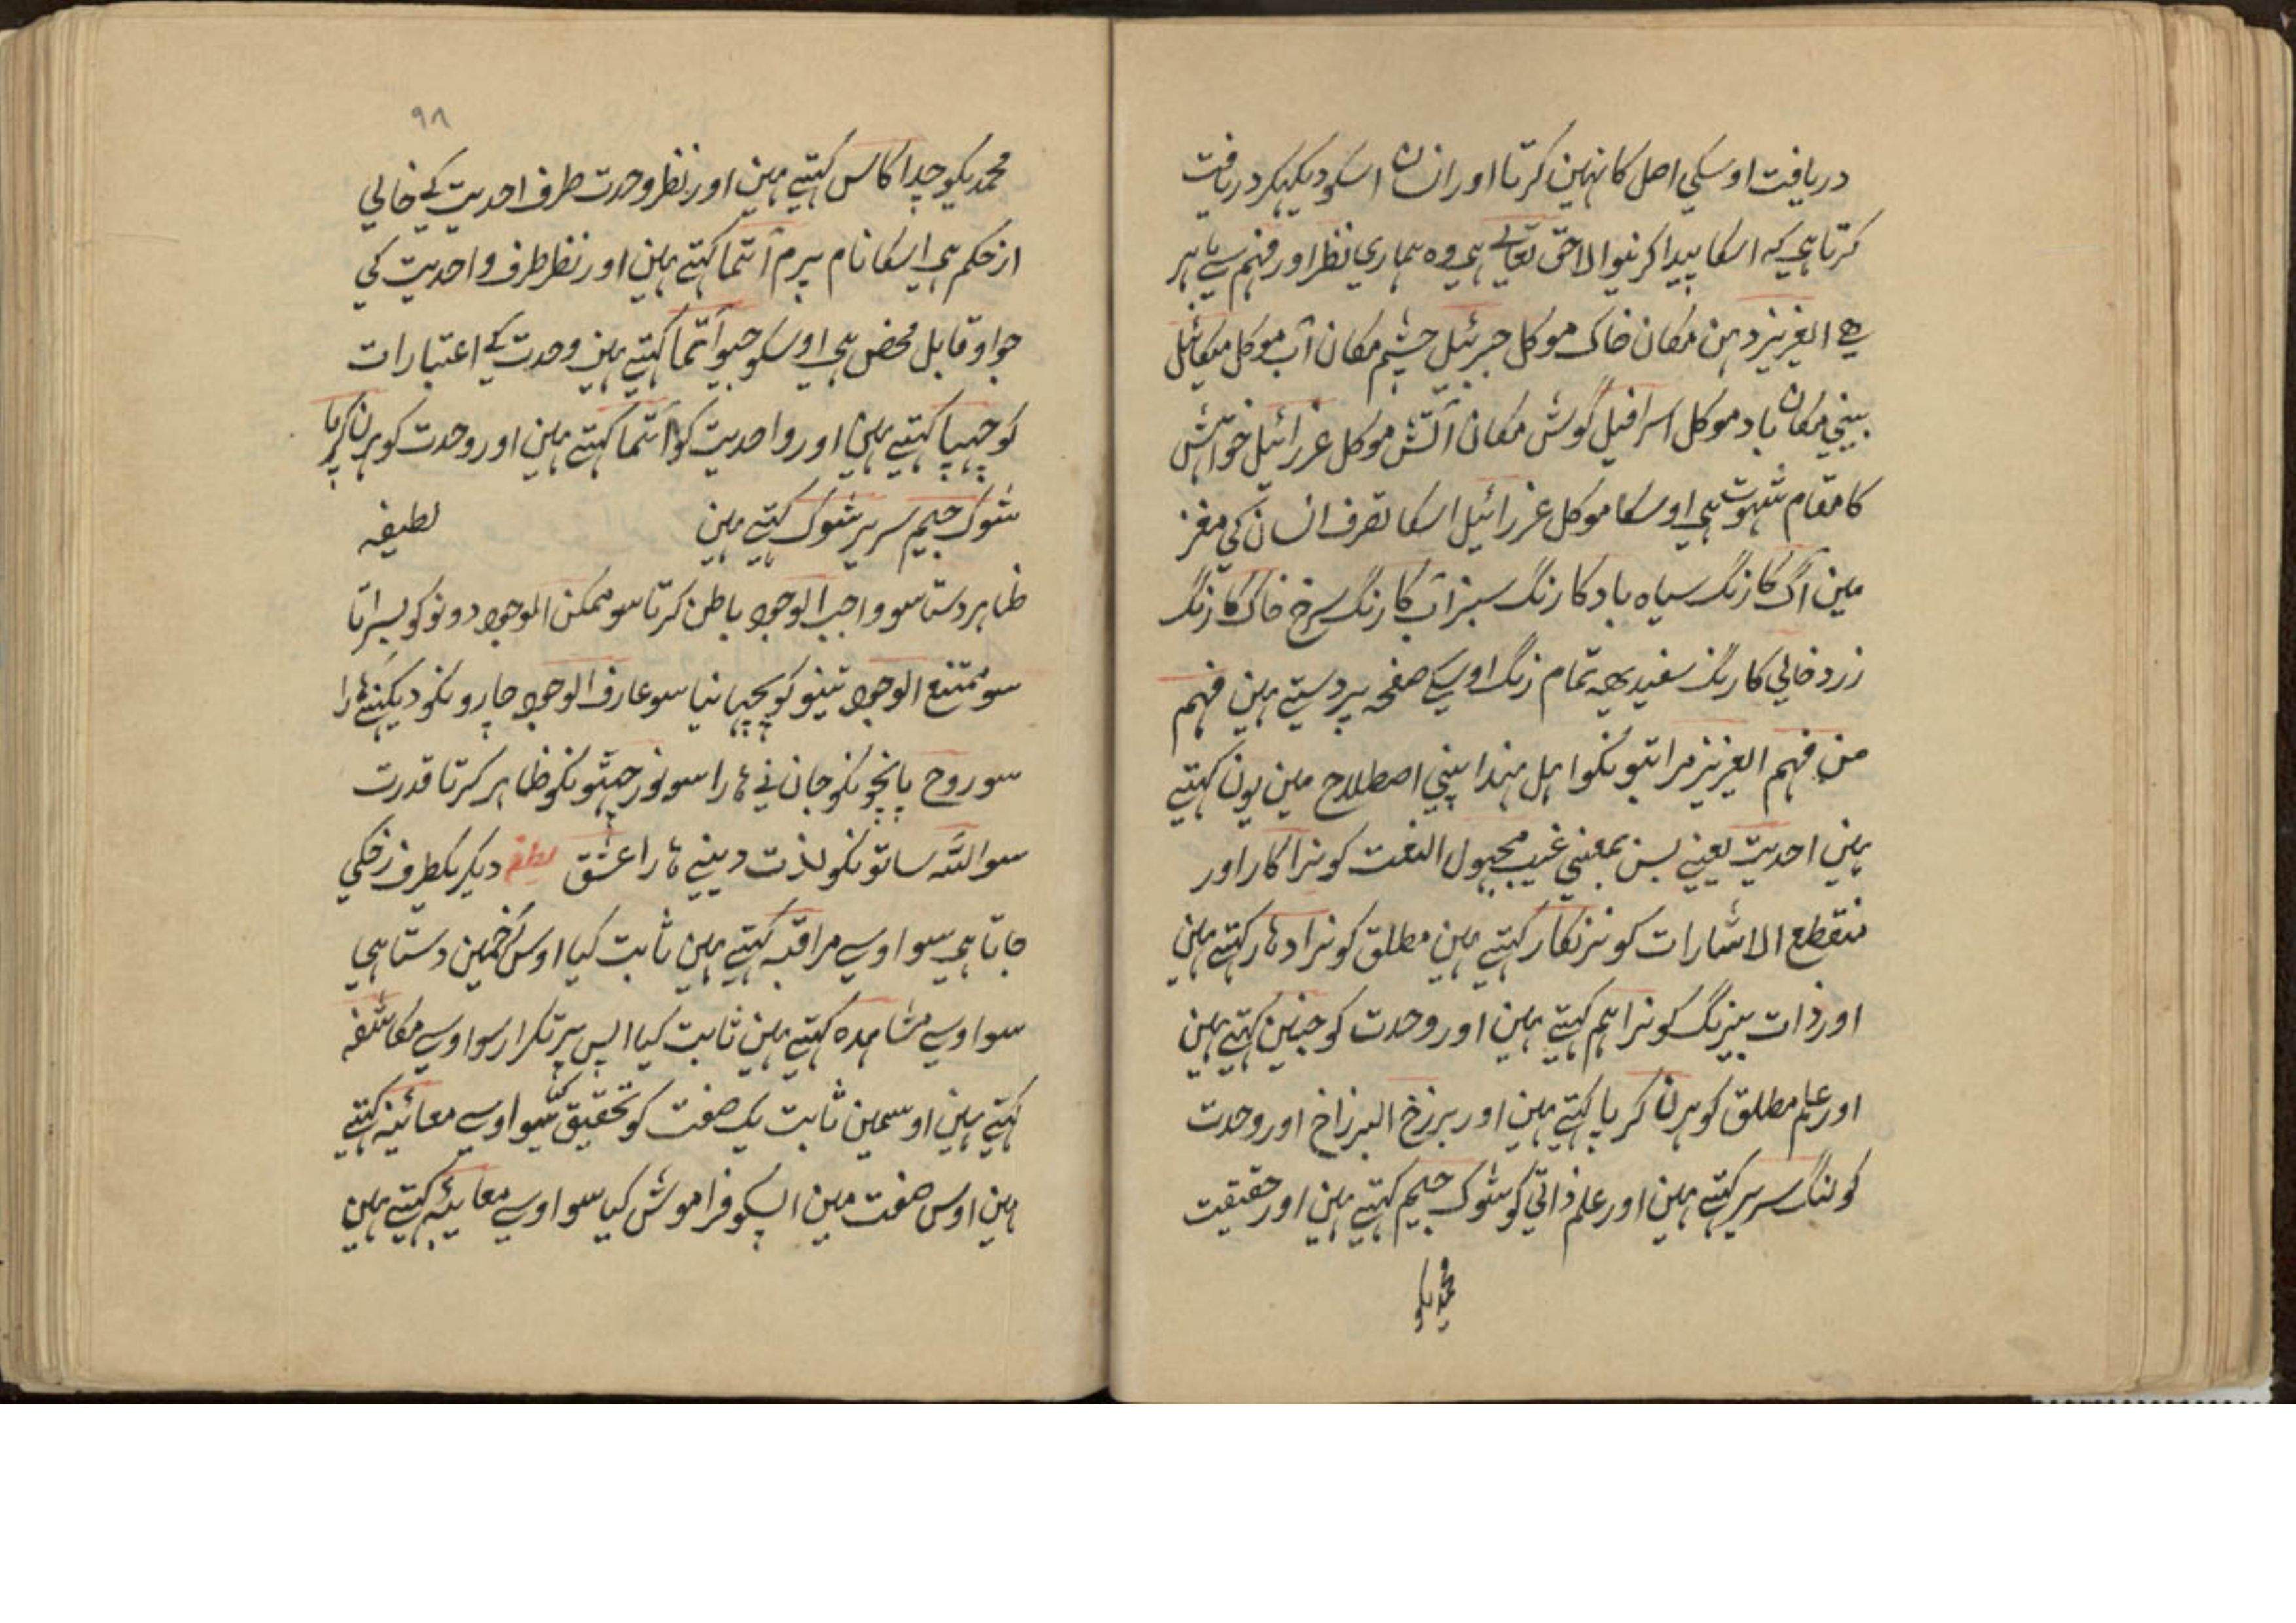 دریافت اوسکی اصل کا نہین کرتا اور انسان اسکو دیکہکر دریافت
کرتا ہی کہ اسکا پیدا کرنیوالا حق تعالے ہی وہ ہماری نظر اور فہم سے باہر
ہے العزیز دہن مکان خاک موکل جبرئیل چشم مکان آب موکل میکائیل
بینی مکان باد موکل اسرافیل گوش مکان آتش موکل عزرائیل خواہش
کا مقام شہوت ہی اوسکا موکل عزرائیل اسکا تصرف انسان کی مغز
مین آگ کا رنگ سیاہ باد کا رنگ سبز آب کا رنگ سرخ خاک کا رنگ
زرد خالی کا رنگ سفید یہہ تمام رنگ اوسکے صفحہ پر دستے ہین فہم
من فہم العزیز مراتبونکو اہل ہند اپنی اصطلاح مین یون کہتے
ہین احدیت یعنے بسن بمعنی غیب مجہول النعت کو نراکار اور
منقطع الاشارات کو نرنکار کہتے ہین مطلق کو نرادہار کہتے ہین
اور ذات بیرنگ کو نراہم کہتے ہین اور وحدت کو جنین کہتے ہین
اور علم مطلق کو ہرن کرپا کہتے ہین اور برزخ البرزاخ اور وحدت
کو لنگ سریر کہتے ہین اور علم ذاتی کو شوک جیم کہتے ہین اور حقیقت
محمدیکو
۹۸
محمدیکو چداکاس کہتے ہین اور نظر وحدت طرف احدیت کے خالی
از حکم ہی اسکا نام پرم آتما کہتے ہین اور نظر طرف واحدیت کی
جو او قابل محض ہی اوسکو جیوآتما کہتے ہین وحدت کے اعتبارات
کو چہپا کہتے ہین اور واحدیت کو آتما کہتے ہین اور وحدت کو ہرن کرپا
شوک جیم سریر شوک کہتے ہین لطیفہ
ظاہر دستا سو واجب الوجود باطن کرتا سو ممکن الوجود دونو کو بسراتا
سو ممتنع الوجود تینو کو پچہانیا سو عارف الوجود چارونکو دیکہنےہارا
سو روح پانچونکو جاننےہارا سو نور چہٹونکو ظاہر کرتا قدرت
سو اللہ ساتونکو لذت دینےہارا عشق لطیفہ دیگر یکطرف رخکی
جاتا ہی سو اوسے مراقبہ کہتے ہین ثابت کیا اوس رخمین دستا ہی
سو اوسے مشاہدہ کہتے ہین ثابت کیا اپس پر تکرار سو اوسے مکاشفہ
کہتے ہین اوسمین ثابت یک صفت کو تحقیق کیا سو اوسے معائینہ کہتے
ہین اوس صفت مین اپسکو فراموش کیا سو اوسے معایئہ کہتے ہین